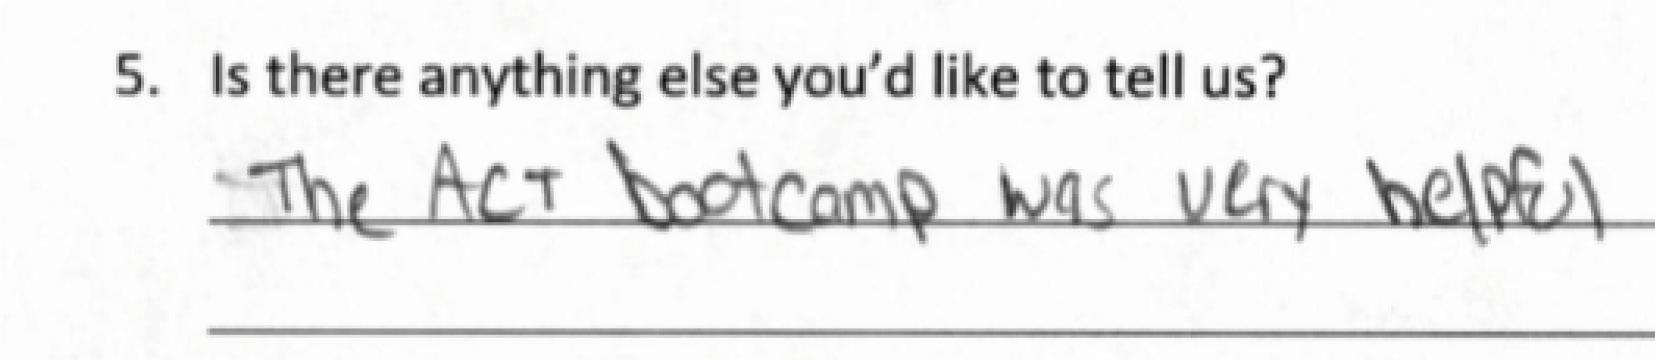 5. Is there anything else you'd like to tell us?
The ACT bootcamp was very helpful